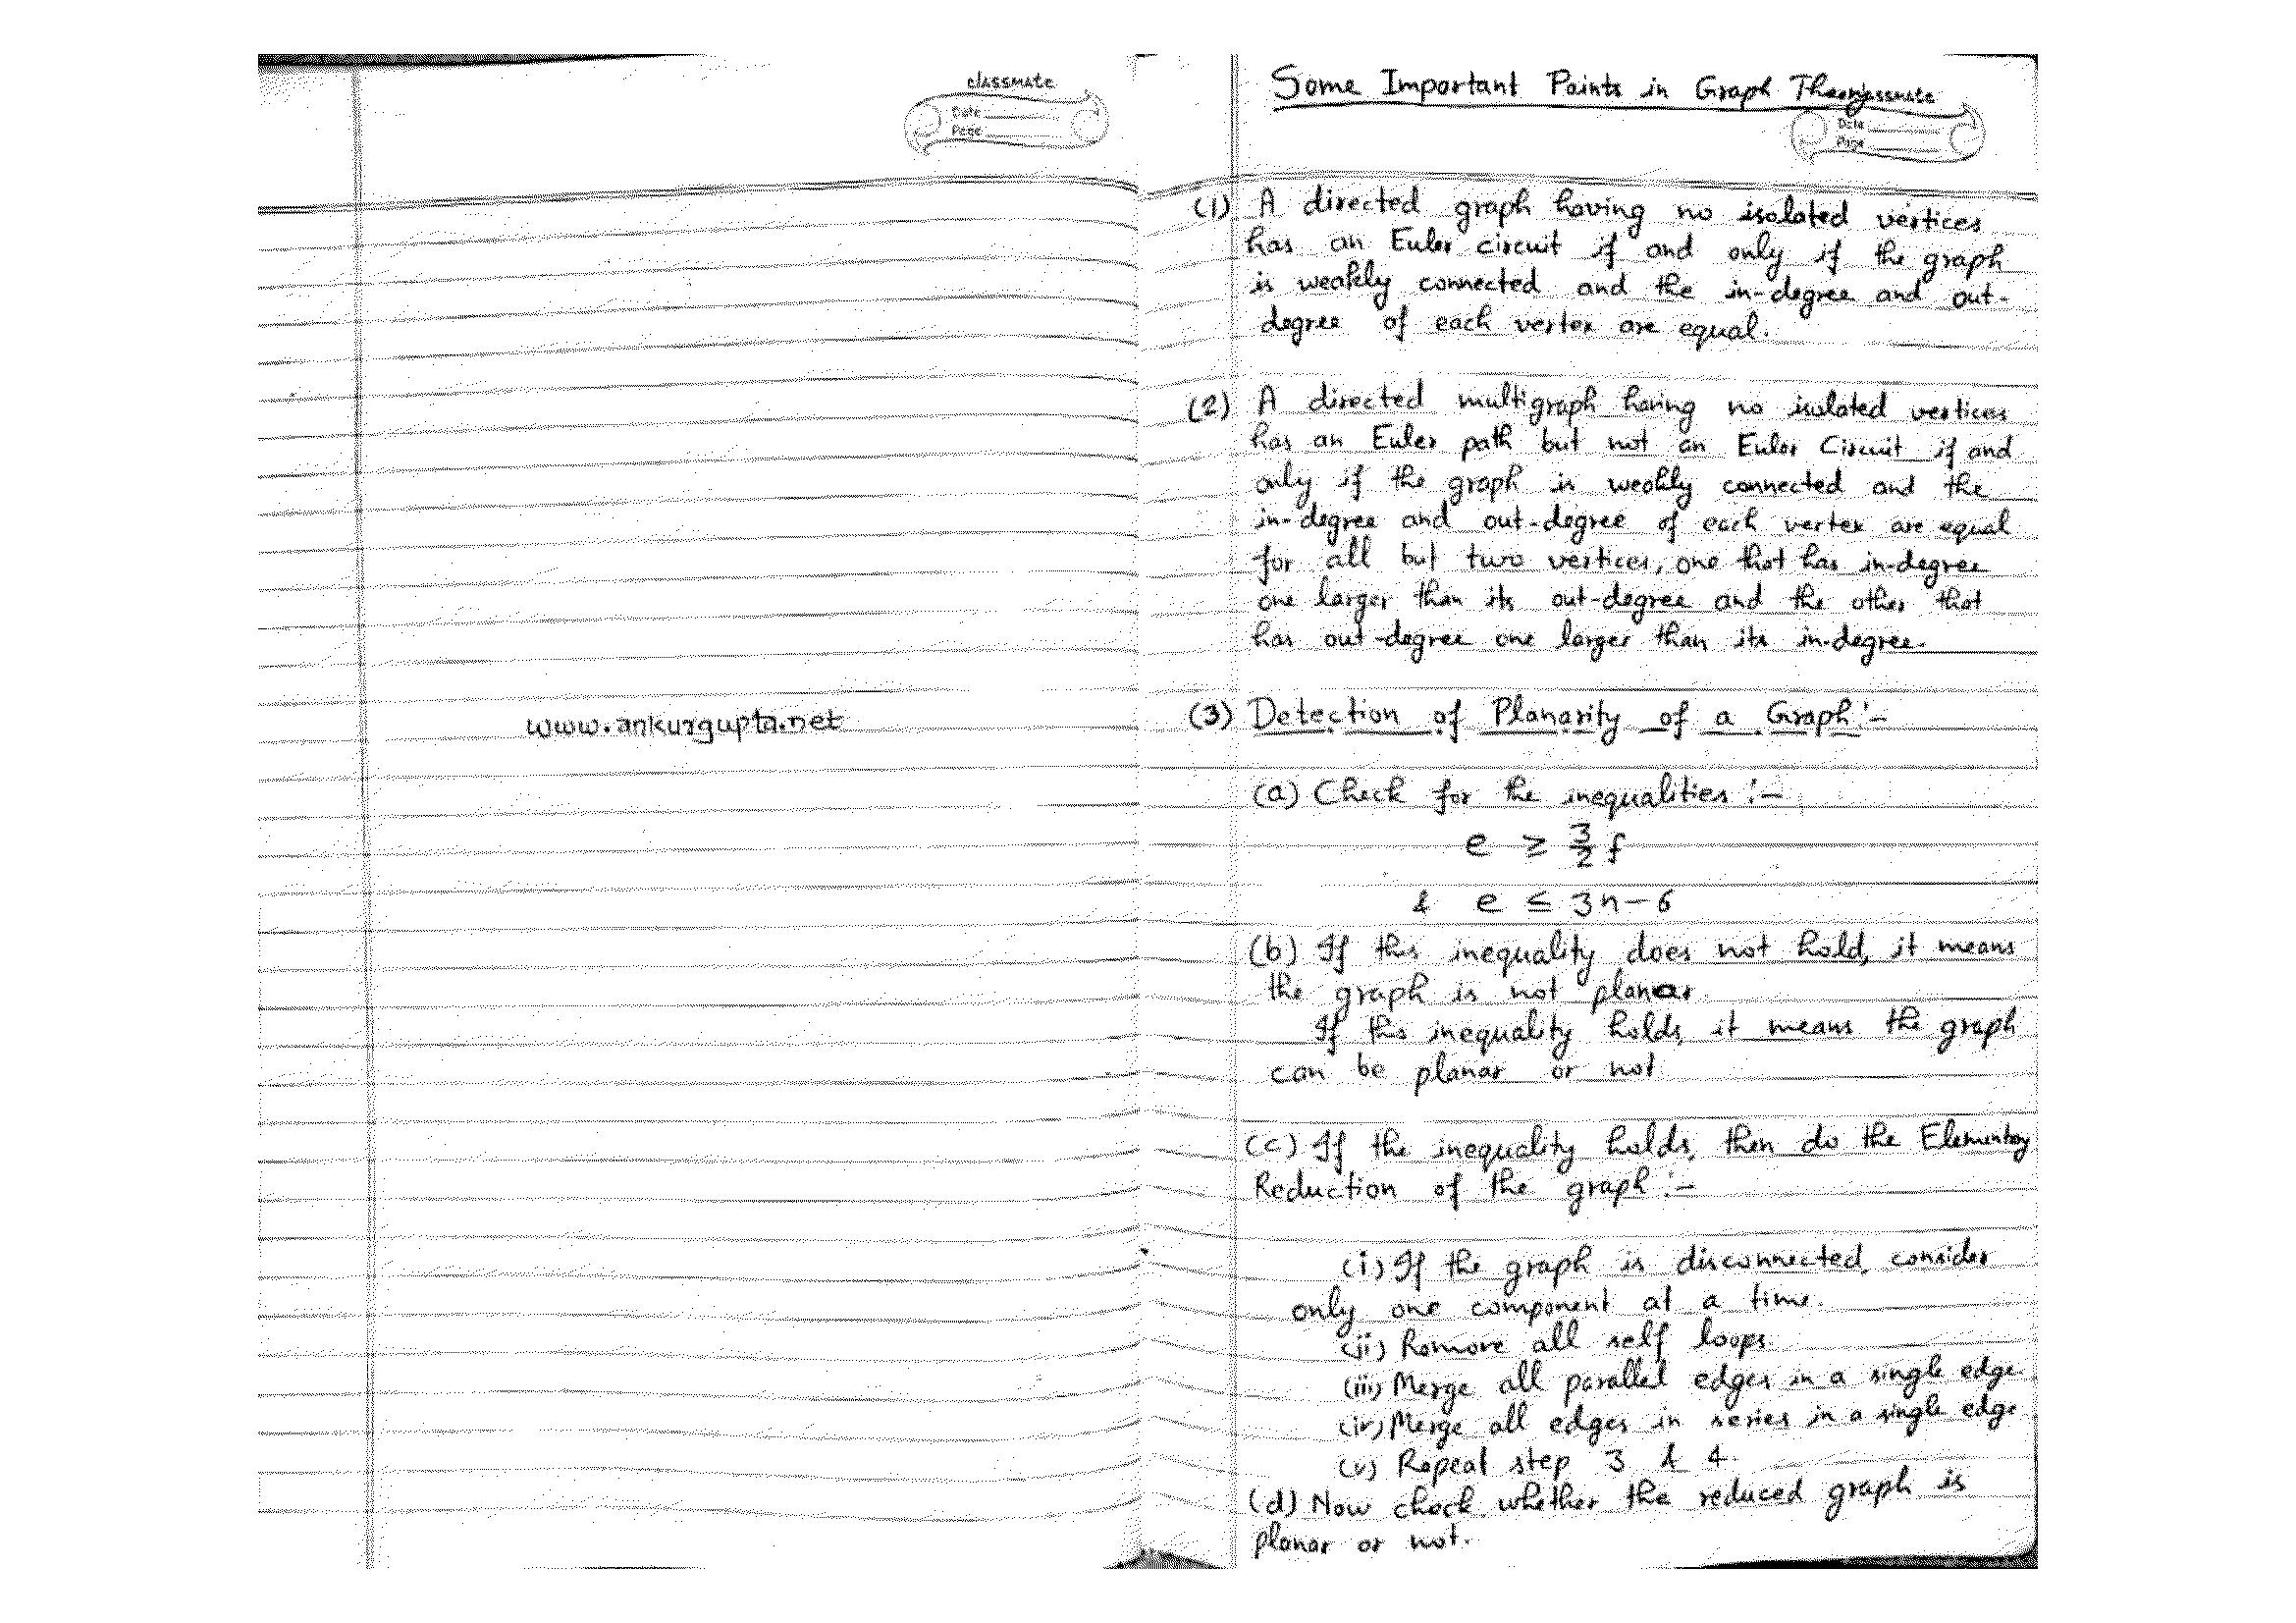 classmate
Date
Page
www.ankurgupta.net
Some Important Points in Graph Theory
classmate
Date
Page
(1) A directed graph having no isolated vertices
has an Euler circuit if and only if the graph
is weakly connected and the in-degree and out-
degree of each vertex are equal.
(2) A directed multigraph having no isolated vertices
has an Euler path but not an Euler Circuit if and
only if the graph is weakly connected and the
in-degree and out-degree of each vertex are equal
for all but two vertices, one that has in-degree
one larger than its out-degree and the other that
has out-degree one larger than its in-degree.
(3) Detection of Planarity of a Graph :-
(a) Check for the inequalities :-
e ≥ 3/2 f
& e ≤ 3n-6
(b) If this inequality does not hold, it means
the graph is not planar.
If this inequality holds, it means the graph
can be planar or not.
(c) If the inequality holds, then do the Elementary
Reduction of the graph :-
(i) If the graph is disconnected, consider
only one component at a time.
(ii) Remove all self loops.
(iii) Merge all parallel edges in a single edge.
(iv) Merge all edges in series in a single edge.
(v) Repeat step 3 & 4.
(d) Now check whether the reduced graph is
planar or not.